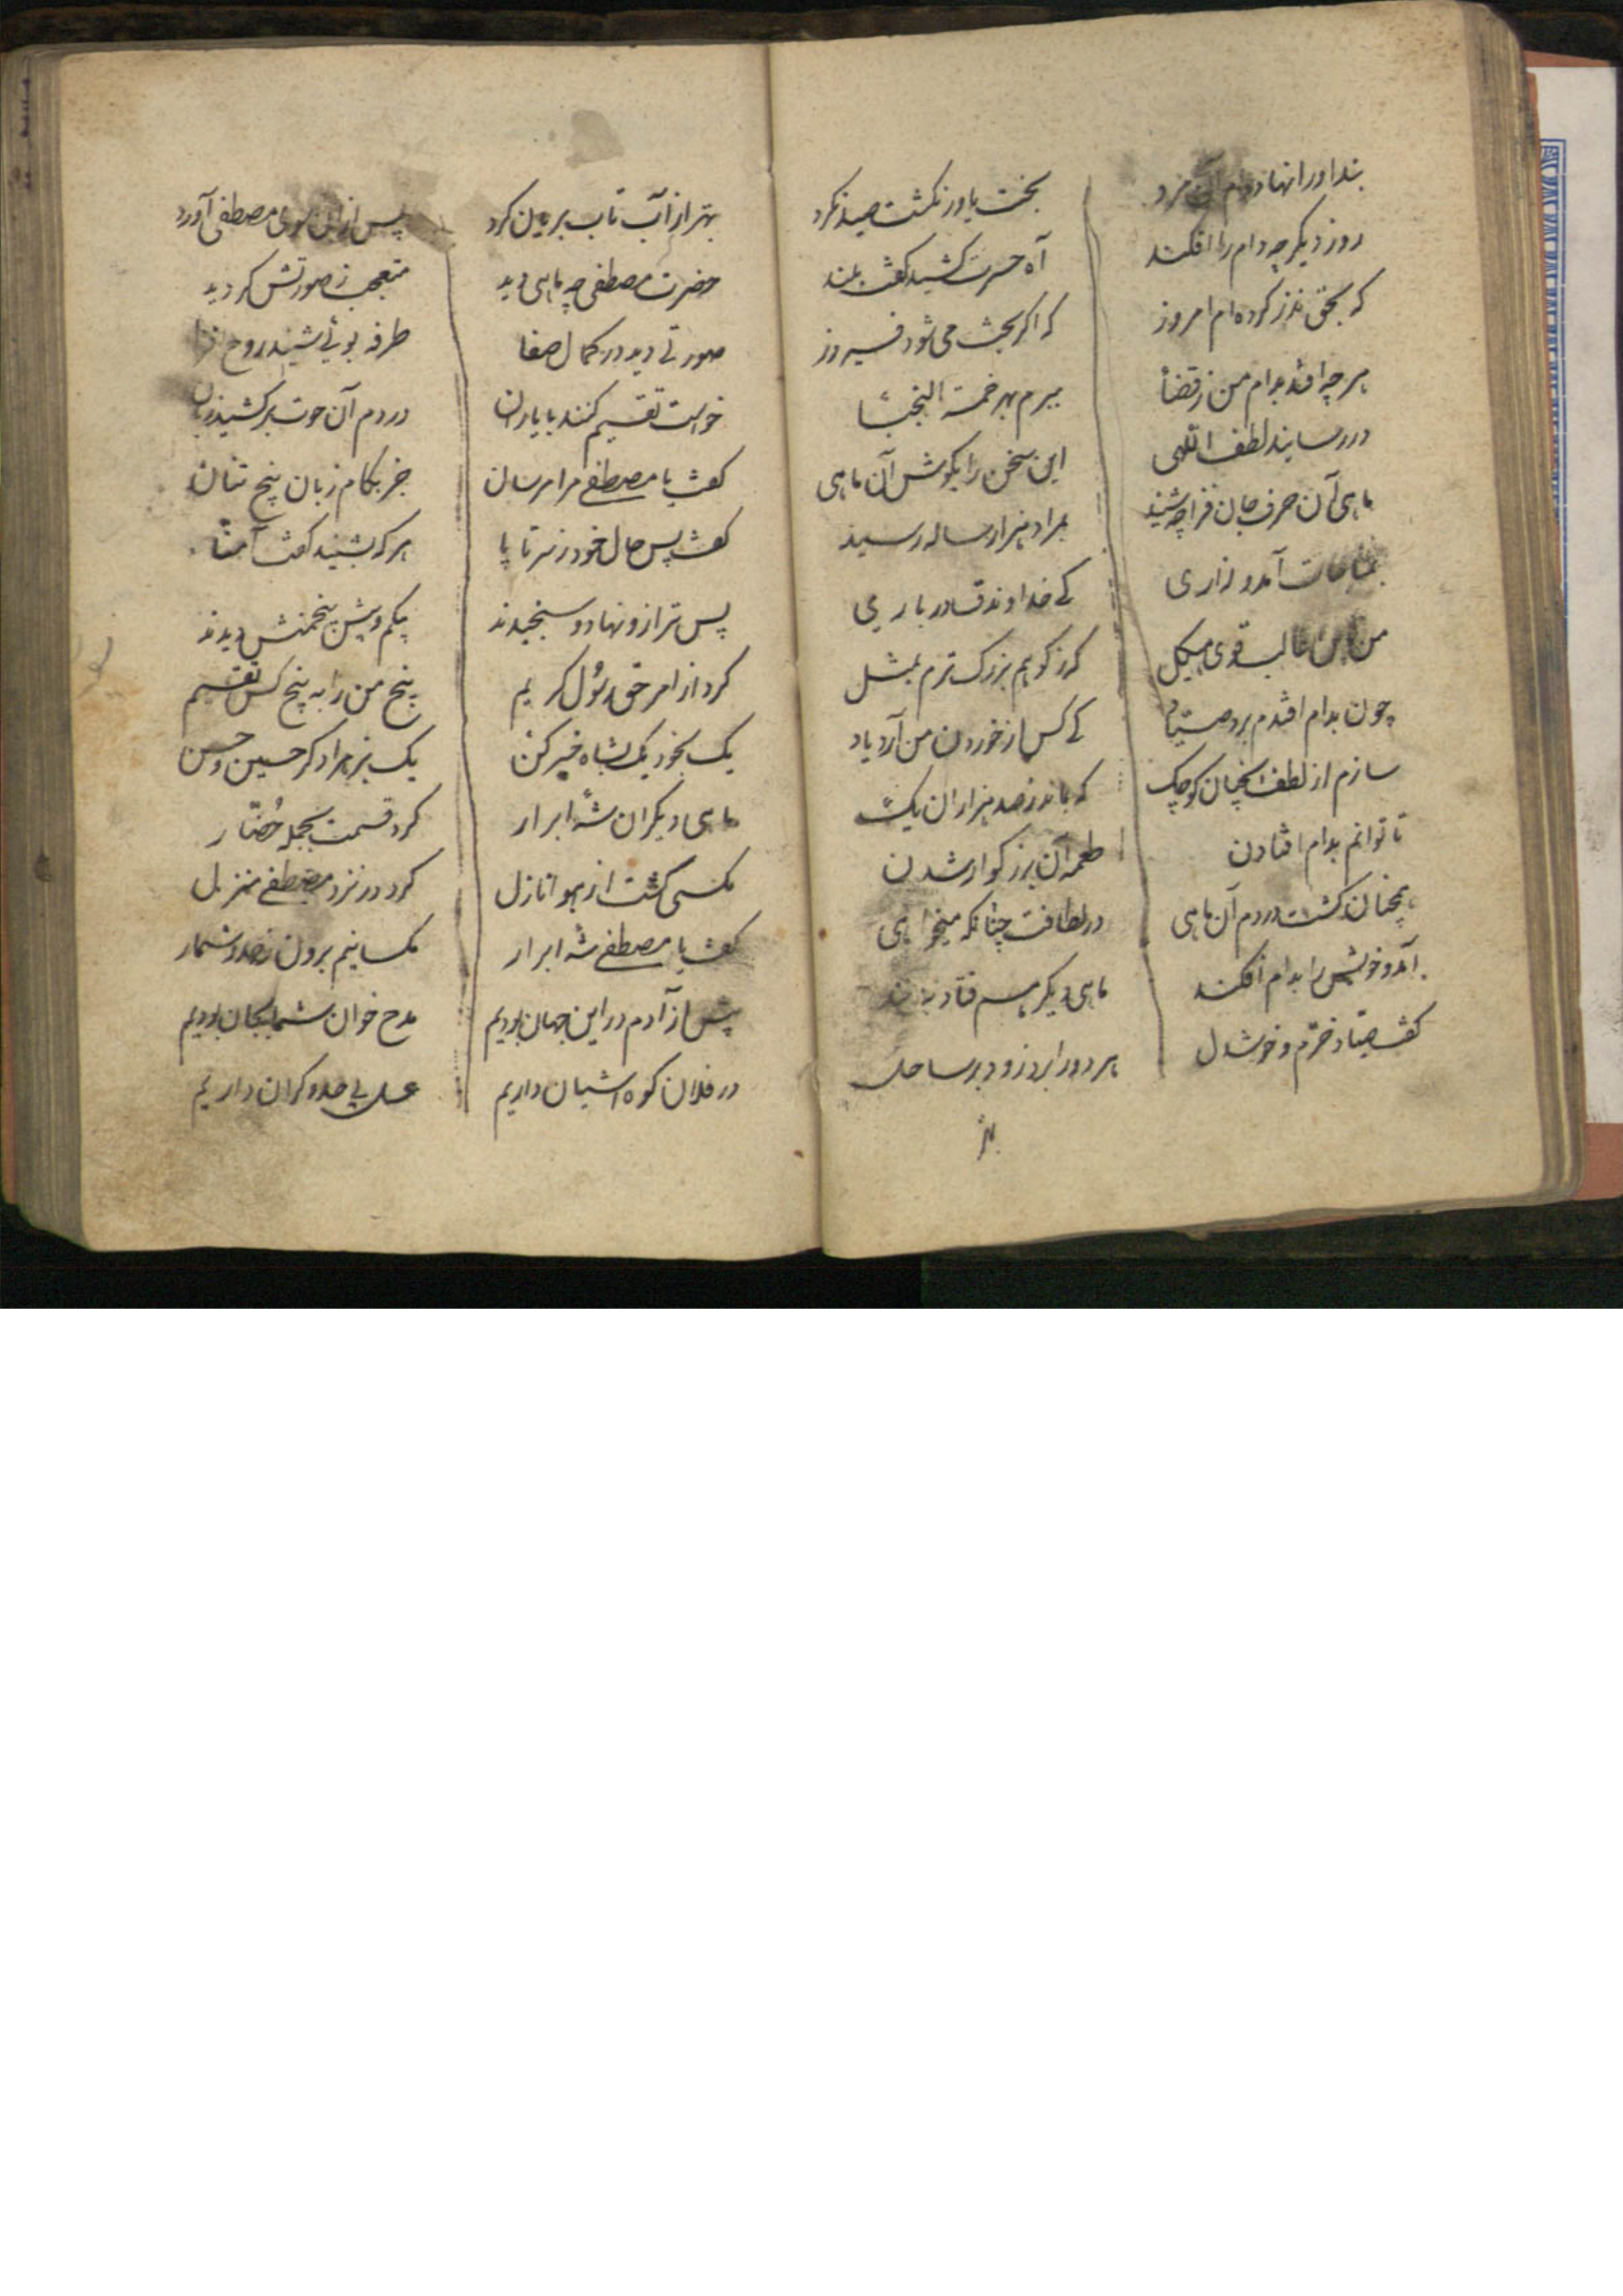 بند او را نهاد دام آن مرد بخت یاور نگشت صید نکرد
روز دیگر چه دام را افکند آه حسرت کشید گفت بلند
که بحق نذر کرده‌ام امروز که اگر بخت می شود فیروز
هر چه افتد بدام من ز قضا میبرم بهر خمسة النجبا
در رسانید لطف اللهی این سخن را بکوش آن ماهی
ماهی آن حرف جان فزا چه شنید بمراد هزار ساله رسید
بمناجات آمد و زاری کے خداوند قادر باری
من باین غالب قوی هیکل کز کوهم بزرک ترم بمثل
چون بدام افتدم بر صیاد کے کس از خوردن من آرد یاد
سازم از لطف آنچنان کوچک که بماند ز صد هزاران یک
تا توانم بدام افتادن طعمه آن بزرکوار شدن
همچنان کشت در دم آن ماهی در لطافت چنانکه میخواهی
آمد و خویش را بدام افکند ماهی دیکر هم فتاد به بند
گفت صیاد خرم و خوشدل هر دو را برد زود بر ساحل
بهتر از آب تاب بریان کرد پس از آن سوی مصطفی آورد
حضرت مصطفی چه ماهی دید متعجب ز صورتش کردید
صورتے دید در کمال صفا طرفه بوئے شنید روح فزا
خواست تقسیم کند با یاران در دم آن حوت برکشید زبان
گفت یا مصطفے مرا مرسان جز بکام زبان پنج تنان
گفت پس حال خود ز سر تا پا هر که بشنید گفت آمنا
پس ترازو نهاد و سنجیدند بیکم و بیش پنجمنش دیدند
کرد از امر حق رسول کریم پنج من را به پنج کس تقسیم
یک بخود یک بشاه خیبر کن یک بزهرا دکر حسین و حسن
ماهی دیکران شه ابرار کرد قسمت بجمله حضار
مکسی کشت از هوا نازل کرد در نزد مصطفے منزل
گفت یا مصطفے شه ابرار مکسانیم برون ز حد و شمار
پیش از آدم در این جهان بودیم مدح خوان شما بجان بودیم
در فلان کوه آشیان داریم عسل بی حد و کران داریم